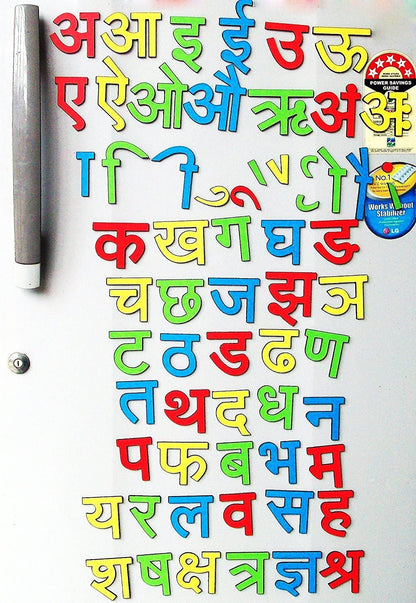 अ आ इ ई उ ऊ
ए ऐ ओ औ ऋ अं अः
ा ि ी ु ू ृ े ै ो ौ
क ख ग घ ङ
च छ ज झ ञ
ट ठ ड ढ ण
त थ द ध न
प फ ब भ म
य र ल व स ह
श ष क्ष त्र ज्ञ श्र
POWER SAVINGS
GUIDE
No.1
Works Without
Stabilizer
LG